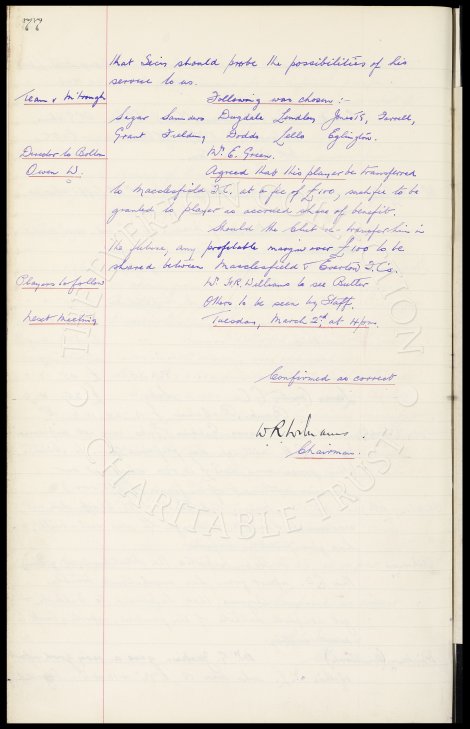 77
that Secs should probe the possibilities of his
service to us.
Team v M'brough Following was chosen :-
Sagar Saunders Dugdale Lindley Jones T.E, Farrell,
Grant Fielding Dodds Lello Eglington.
Director to Bolton Mr. E. Green.
Owen W. Agreed that this player be transferred
to Macclesfield F.C. at a fee of £100, such fee to be
granted to player as accrued share of benefit.
Should the Club re-transfer him in
the future, any profitable margin over £100 to be
shared between Macclesfield & Everton F.C's.
Players to follow W. R. Williams to see Butler
Others to be seen by Staff.
Next Meeting Tuesday, March 2nd at 4 p.m.
Confirmed as correct
W.R. Williams.
Chairman.
THE EVERTON COLLECTION
CHARITABLE TRUST